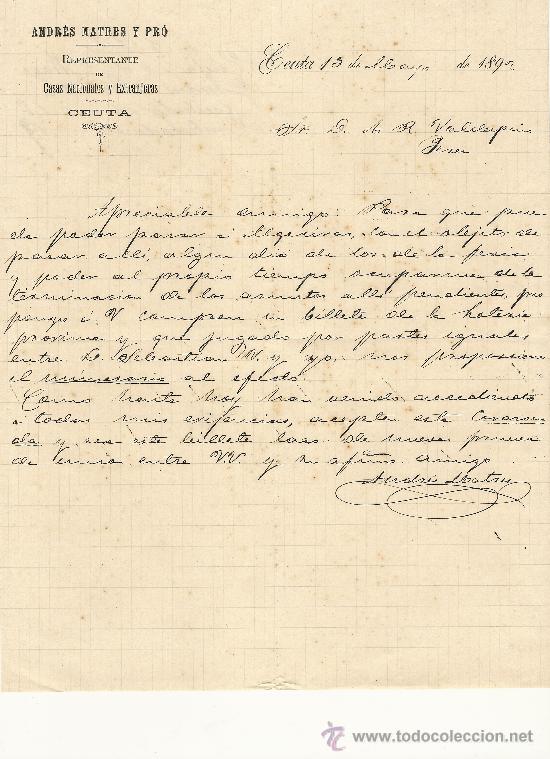 ANDRÉS MATRES Y PRÓ
REPRESENTANTE
DE
Casas Nacionales y Extranjeras
CEUTA
Ceuta 15 de Mayo de 189
Sr. D. A. R. Valdespin
Apreciable amigo: Para que pue
da poder pasar á Algeciras, con el objeto de
pasar alli, algun dia de los de la feria
y poder al propio tiempo ocuparme de la
terminacion de los asuntos alli pendientes, pro
pongo á V compren un billete de la loteria
proxima y que jugado por partes iguales
entre D. Sebastian V. y yo, nos proporcione
el necesario al efecto.
Como hasta hoy han venido accediendo
á todas mis exigencias, acepten esta
da y sea este billete lazo de nueva prueba
de union entre VV. y su afmo amigo
Andrés Matres
www.todocoleccion.net